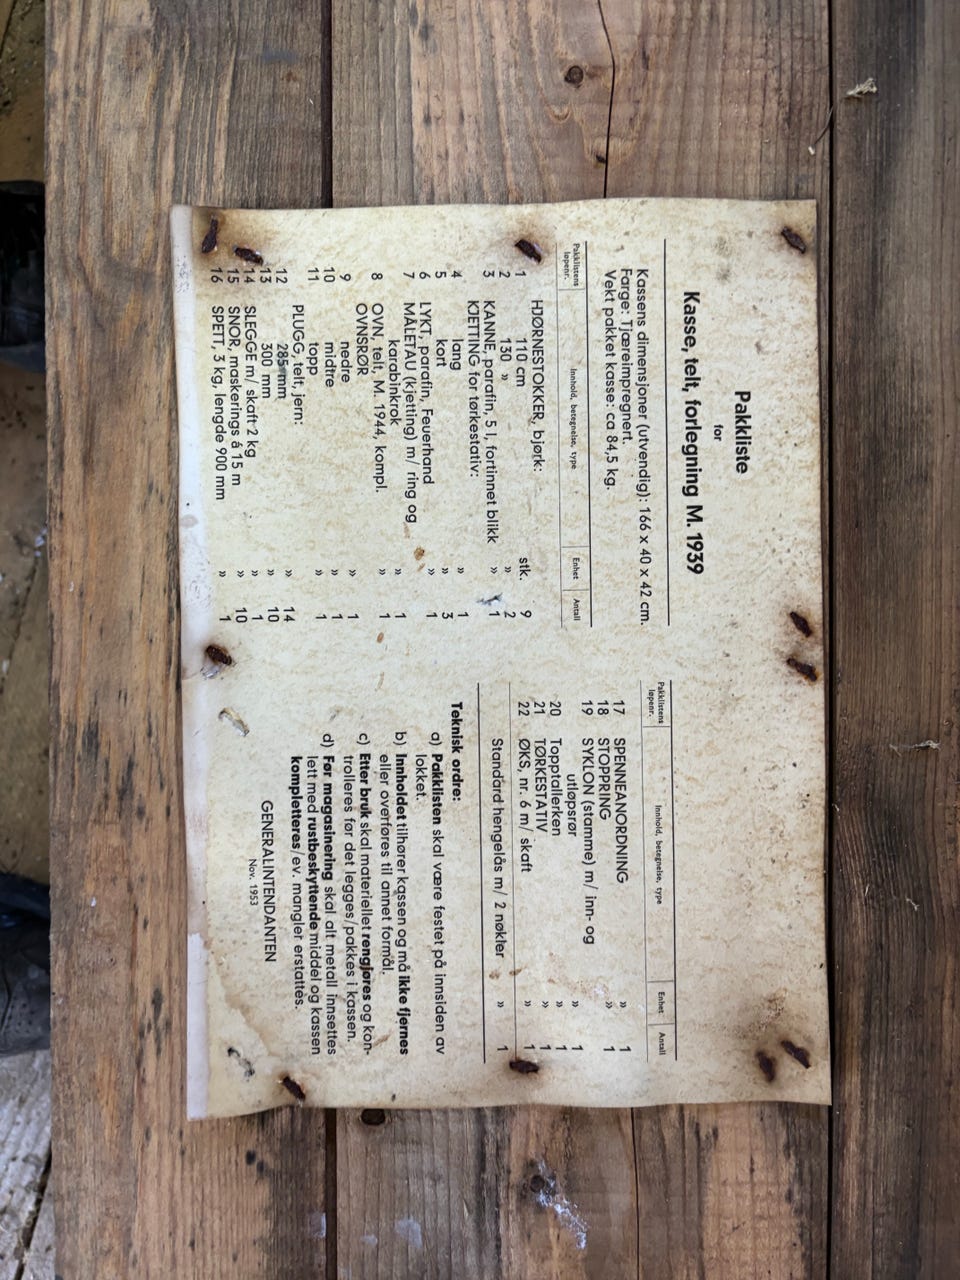 Pakkliste
for
Kasse, telt, forlegning M. 1939
Kassens dimensjoner (utvendig): 166 x 40 x 42 cm.
Farge: Tjæreimpregnert.
Vekt pakket kasse: ca 84,5 kg.
Pakklistens løpenr. Innhold, betegnelse, type Enhet Antall
HJØRNESTOKKER, bjørk:
1 110 cm stk. 9
2 130 » » 2
3 KANNE, parafin, 5 l, fortinnet blikk » 1
KJETTING for tørkestativ:
4 lang » 1
5 kort » 3
6 LYKT, parafin, Feuerhand » 1
7 MÅLETAU (kjetting) m/ ring og
karabinkrok » 1
8 OVN, telt, M. 1944, kompl. » 1
OVNSRØR
9 nedre » 1
10 midtre » 1
11 topp » 1
PLUGG, telt, jern:
12 285 mm » 14
13 300 mm » 10
14 SLEGGE m/ skaft 2 kg » 1
15 SNOR, maskerings á 15 m » 10
16 SPETT, 3 kg, lengde 900 mm » 1
Pakklistens løpenr. Innhold, betegnelse, type Enhet Antall
17 SPENNEANORDNING » 1
18 STOPPRING » 1
19 SYKLON (stamme) m/ inn- og
utløpsrør » 1
20 Topptallerken » 1
21 TØRKESTATIV » 1
22 ØKS, nr. 6 m/ skaft » 1
Standard hengelås m/ 2 nøkler » 1
Teknisk ordre:
a) Pakklisten skal være festet på innsiden av
lokket.
b) Innholdet tilhører kassen og må ikke fjernes
eller overføres til annet formål.
c) Etter bruk skal materiellet rengjøres og kon-
trolleres før det legges/pakkes i kassen.
d) Før magasinering skal alt metall innsettes
lett med rustbeskyttende middel og kassen
kompletteres/ev. mangler erstattes.
GENERALINTENDANTEN
Nov. 1953